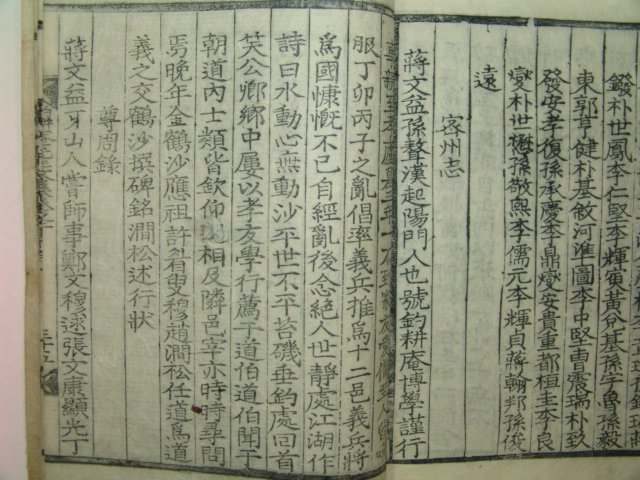 鏺朴世鳳李仁堅李輝寅黃兌基孫字魯孫毅
東郭亨健朴基敘河淮圖李中堅曺震瑞朴致
發安孝復孫承慶李鼎爕安貴重都桓圭李良
爕朴世懋孫敬熙李儒元李輝貞蔣翰邦孫俊
遠
密州志
蔣文益孫聱漢起陽門人也號釣耕庵博學謹行
服丁卯丙子之亂倡率義兵推爲十二邑義兵將
爲國慷慨不已自經亂後念絶人世靜處江湖作
詩曰水動心無動沙平世不平苔磯垂釣處回首
笑公卿鄉中屢以孝友學行薦于道伯道伯聞于
朝道內士類皆欽仰相及隣邑宰亦時時尋問
焉晚年金鶴沙應祖許眉叟穆趙澗松任道爲道
義之交鶴沙撰碑銘澗松述行狀
尊周錄
蔣文益牙山人嘗師事鄭文穆逑張文康顯光丁
三十五